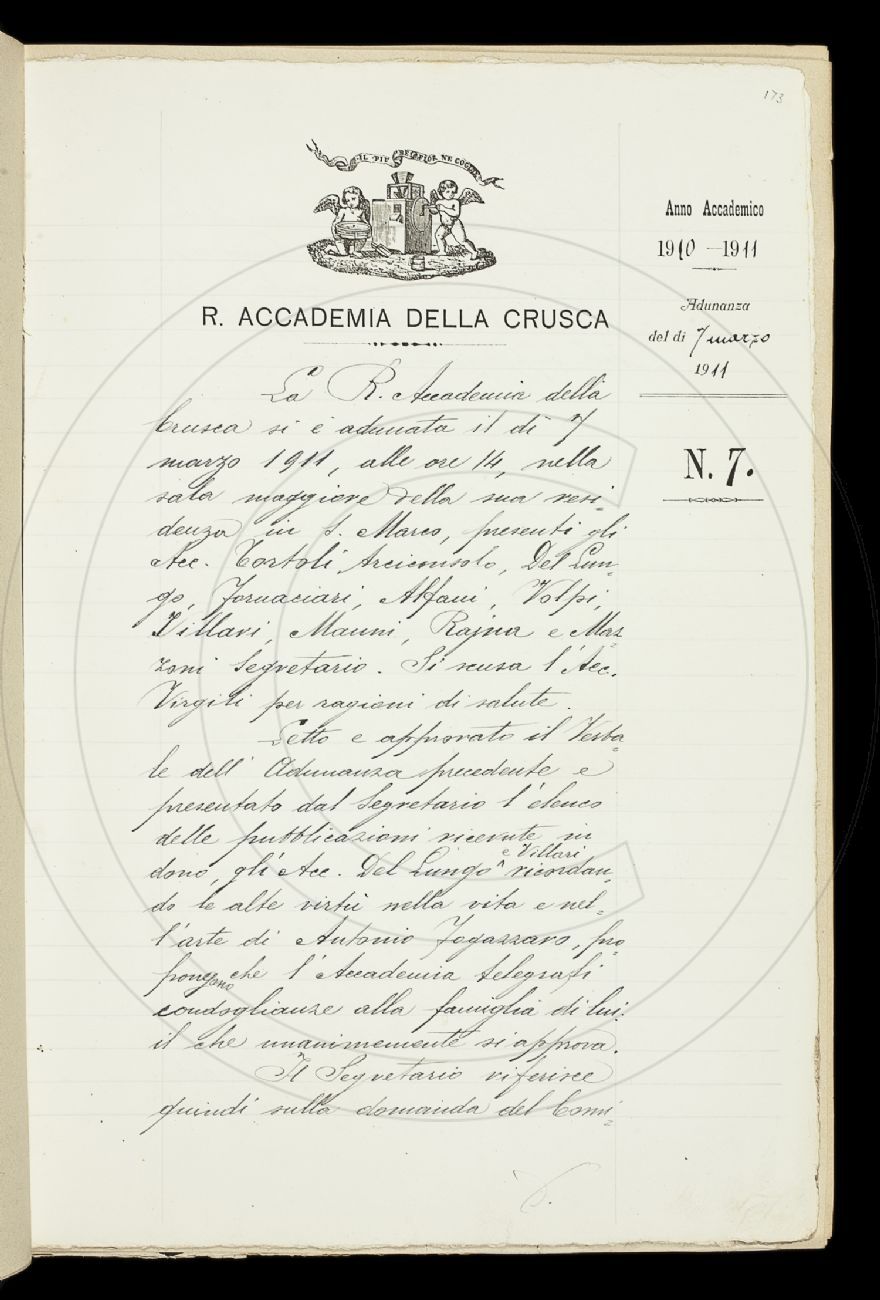 173
IL PIÙ BEL FIOR NE COGLIE
Anno Accademico
1910 - 1911
Adunanza
del dì 7 marzo
1911
N. 7.
R. ACCADEMIA DELLA CRUSCA
La R. Accademia della
Crusca si è adunata il dì 7
marzo 1911, alle ore 14, nella
sala maggiore della sua resi=
denza in S. Marco, presenti gli
Acc. Tortoli Arciconsolo, Del Lun=
go, Fornaciari, Alfani, Volpi,
Villari, Manni, Rajna e Maz=
zoni Segretario. Si scusa l'Acc.
Virgili per ragioni di salute.
Letto e approvato il Verba=
le dell'Adunanza precedente e
presentato dal Segretario l'elenco
delle pubblicazioni ricevute in
dono, gli Acc. Del Lungo e Villari ricordan=
do le alte virtù nella vita e nel=
l'arte di Antonio Fogazzaro, pro=
pongono che l'Accademia telegrafi
condoglianze alla famiglia di lui:
il che unanimemente si approva.
Il Segretario riferisce
quindi sulla domanda del Comi=